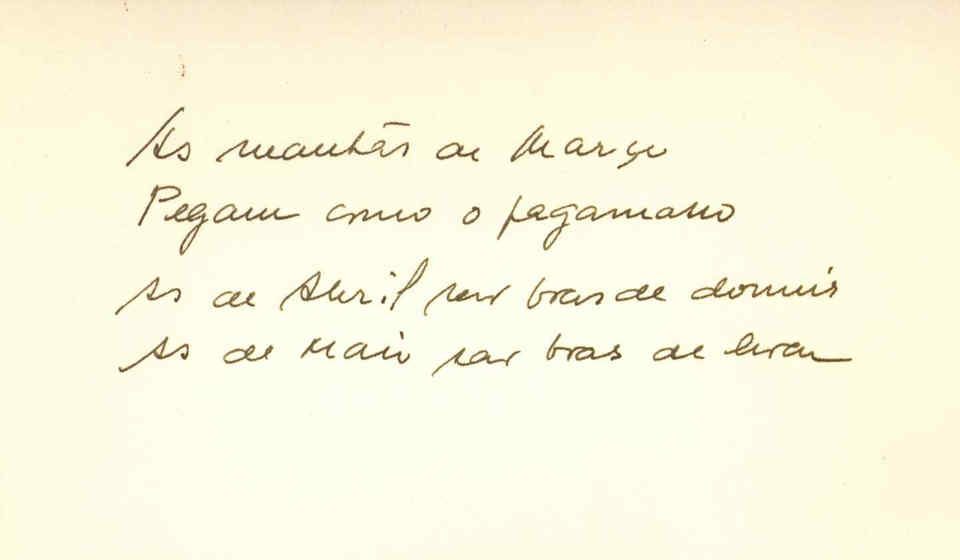 As manhãs de Março
Pegam como o pegamasso
As de Abril são boas de dormir
As de Maio são boas de